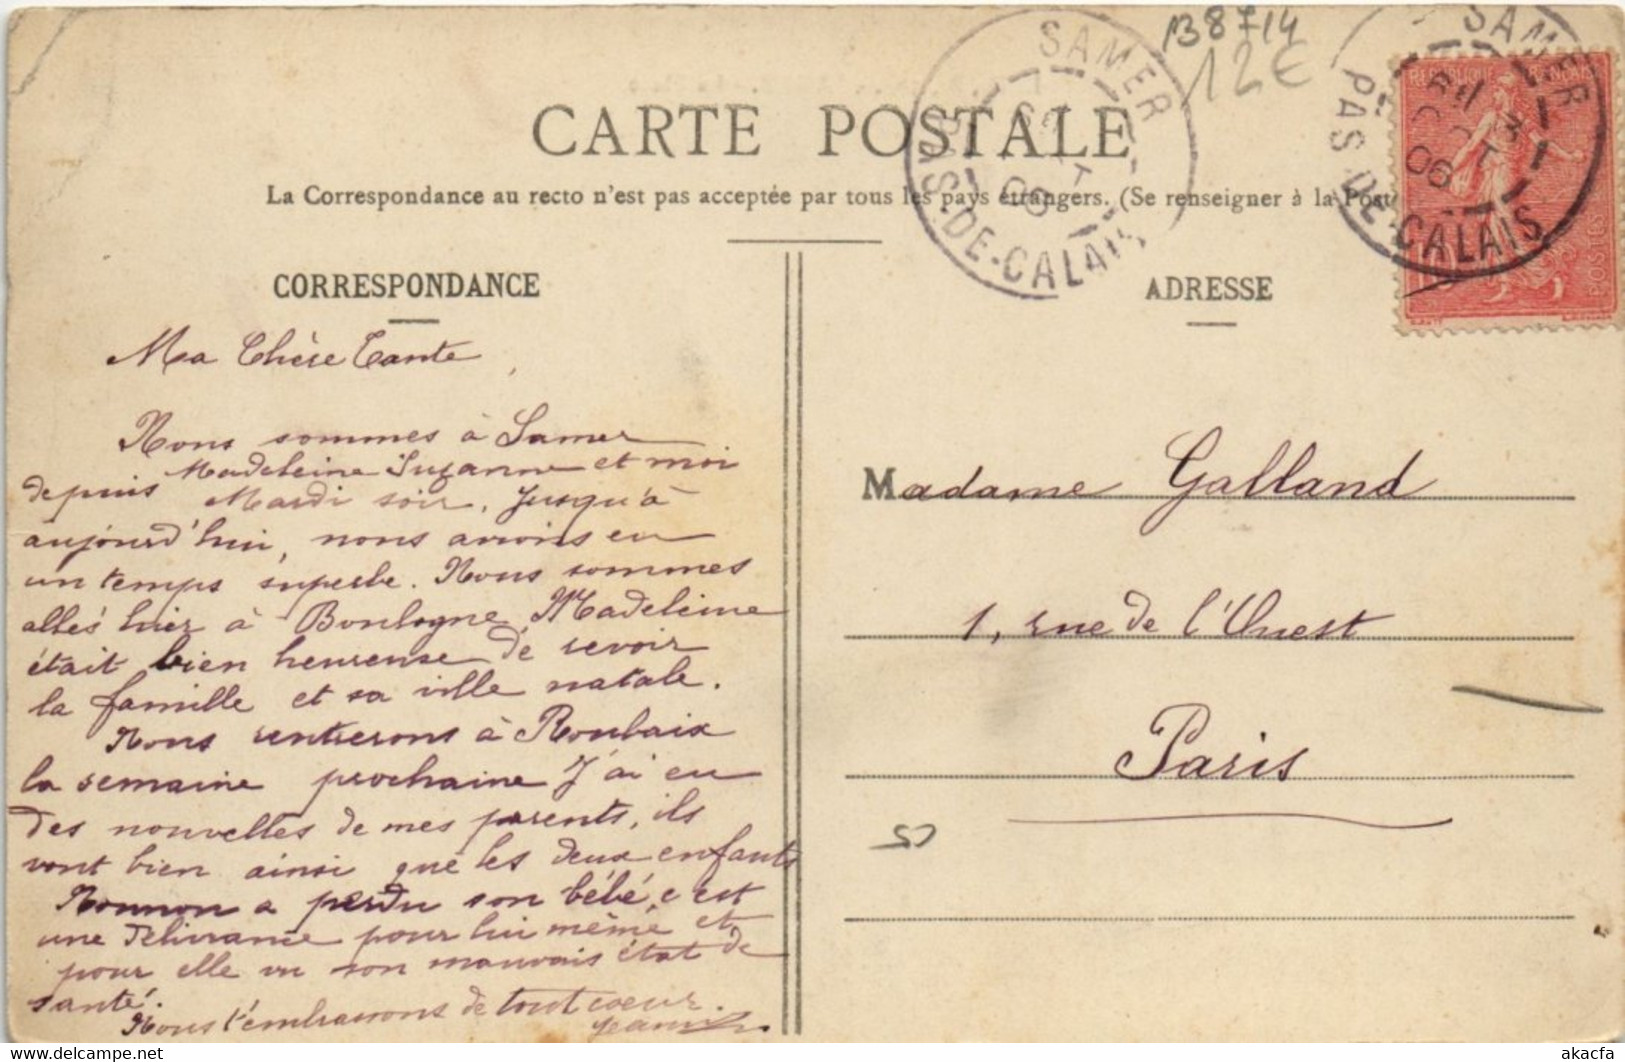 B8714
12€
SAMER
PAS-DE-CALAIS
06
SAMER
PAS-DE-CALAIS
06
CARTE POSTALE
La Correspondance au recto n'est pas acceptée par tous les pays étrangers. (Se renseigner à la Post
REPUBLIQUE FRANÇAISE
POSTES
CORRESPONDANCE
Ma Chère Tante,
Nous sommes à Samer
Madeleine Suzanne et moi
depuis Mardi soir. Jusqu'à
aujourd'hui, nous avions eu
un temps superbe. Nous sommes
allés hier à Boulogne, Madeleine
était bien heureuse de revoir
la famille et sa ville natale.
Nous rentrerons à Roubaix
la semaine prochaine J'ai eu
des nouvelles de mes parents, ils
vont bien ainsi que les deux enfants
a perdu son bébé, c'est
une délivrance pour lui même et
pour elle vu son mauvais état de
santé.
Nous t'embrassons de tout coeur.
ADRESSE
Madame Galland
1, rue de l'Ouest
Paris
akacfa